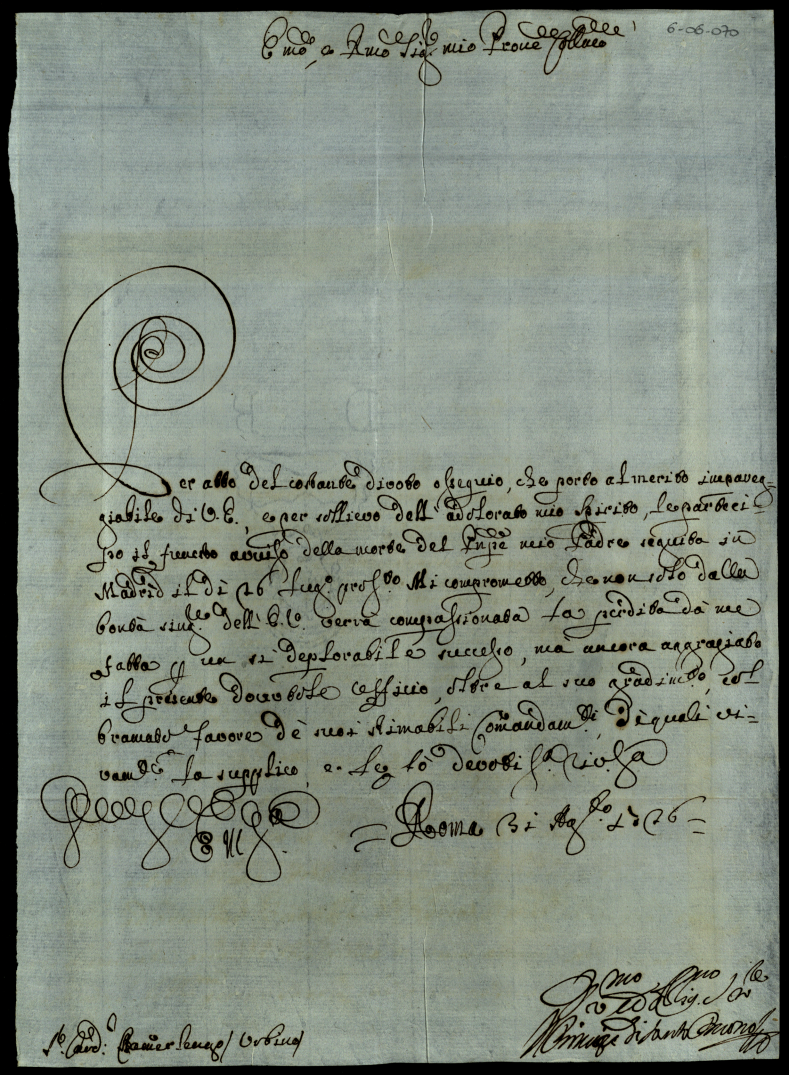 6-06-070
Emo, e Rmo Sig.r mio Prone Collmo
Per atto del costante divoto ossequio, che porto al merito impareg=
giabile di V.E., e per sollievo dell' adolorato mio spirito, le parteci=
po il funesto avviso della morte del Pnpe mio Padre seguita in
Madrid il dì 26 Lugo. pross.o Mi comprometto, che non solo dalla
bontà sing.re dell' E.V. verrà compassionata la perdita dà me
fatta p un sì deplorabile successo, ma ancora aggragiato
il presente dovutole Officio, oltre al suo gradim.to, col
bramato favore dè suoi stimabili Comandam.ti, Di quali vi=
vam.te la supplico, e le fò devotiss.a Riv.za
= Roma 31 Ag.to 1726 =
Sr. Card: Camerlengo / Urbino /